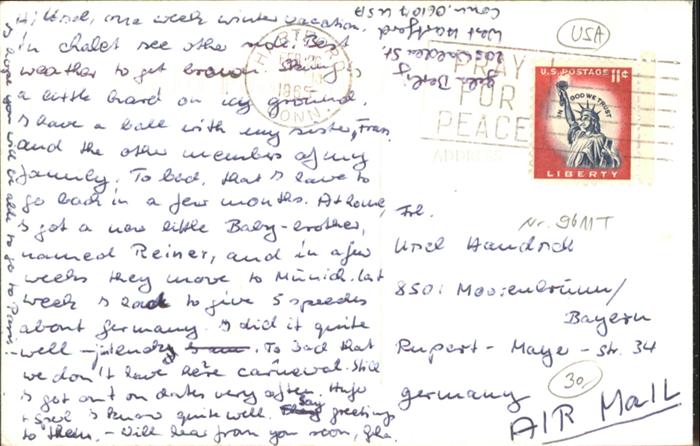 Hi Ursel, one week winter vacation.
in chalet see other side. Best
weather to get brown. Skiing is
a little hard on icy ground.
I have a ball with my sister, Fran
and the other members of my
family. To bad, that I have to
go back in a few months. At home
I got a new little Baby-brother,
named Reiner, and in a few
weeks they move to Münich. last
week I had to give 5 speeches
about germany. I did it quite
well
To bad that
we don't have here carneval. Still
I got out on dates very often. Hugo
I know quite well. Say greetings
to them. - Will hear from you soon,
I hope you will be able to go to Paris!
West Hartford
Conn. 06107 USA
HARTFORD
1965
CONN.
PRAY
FOR
PEACE
ADDRESS
USA
U.S. POSTAGE 11¢
IN GOD WE TRUST
LIBERTY
Nr. 96 MT
Frl.
8501
Bayern
Rupert - Maye - Str. 34
germany
30,-
AIR MAIL